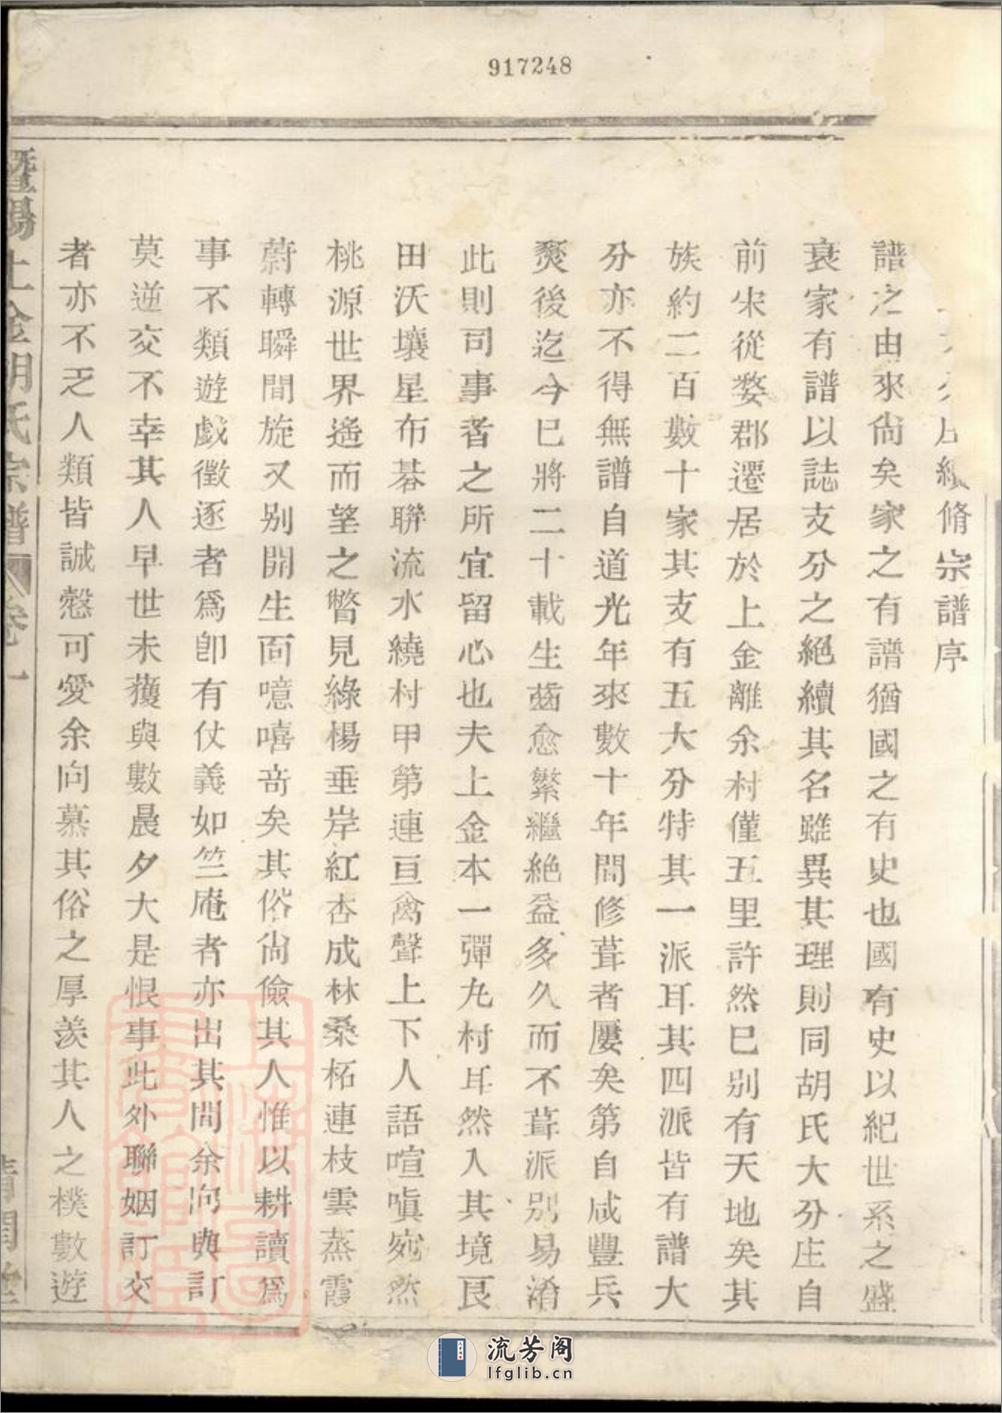 917248
續脩宗譜序
譜之由來尙矣家之有譜猶國之有史也國有史以紀世系之盛
衰家有譜以誌支分之絕續其名雖異其理則同胡氏大分庄自
前宋從婺郡遷居於上金離余村僅五里許然已别有天地矣其
族約二百數十家其支有五大分特其一派耳其四派皆有譜大
分亦不得無譜自道光年來數十年間修葺者屢矣第自咸豐兵
燹後迄今已將二十載生齒愈繁繼絕益多久而不葺派别易淆
此則司事者之所宜留心也夫上金本一彈丸村耳然入其境良
田沃壤星布碁聯流水繞村甲第連亘禽聲上下人語喧嗔宛然
桃源世界遙而望之瞥見綠楊垂岸紅杏成林桑柘連枝雲蒸霞
蔚轉瞬間旋又别開生面噫嘻奇矣其俗尙儉其人惟以耕讀爲
事不類遊戲徵逐者爲卽有仗義如竺庵者亦出其間余向與訂
莫逆交不幸其人早世未獲與數晨夕大是恨事此外聯姻訂交
者亦不乏人類皆誠慤可愛余向慕其俗之厚羨其人之樸數遊
暨陽上金胡氏宗譜 卷一 清閏堂
流芳阁
lfglib.cn